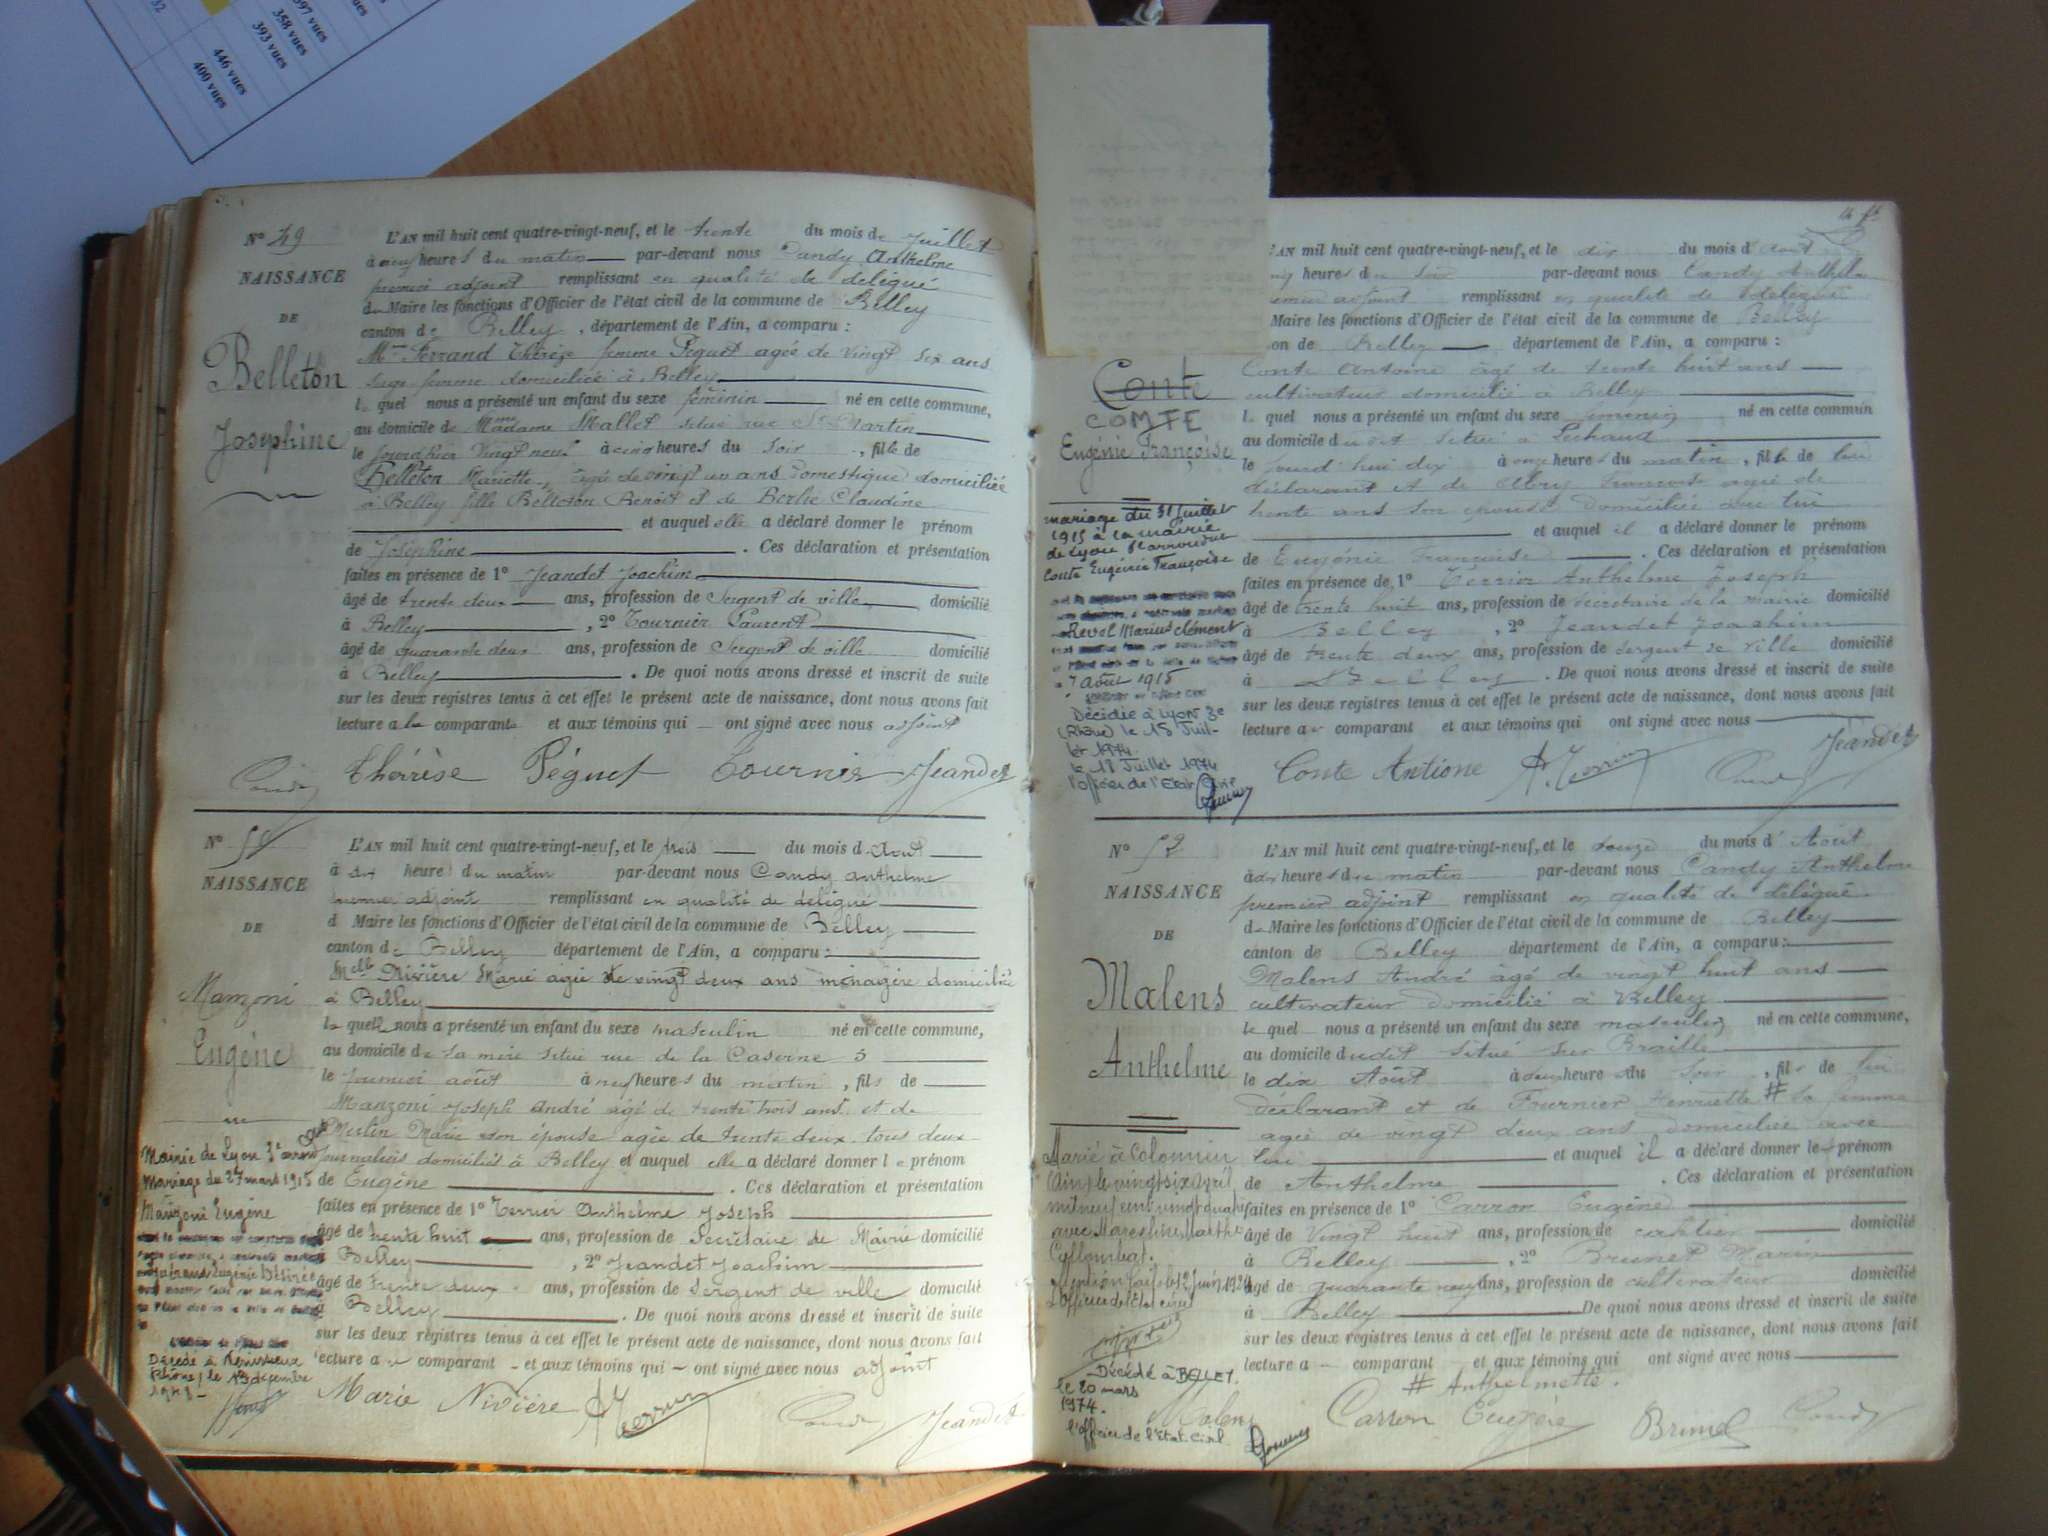 397 vues
358 vues
393 vues
446 vues
400 vues
N° 49
NAISSANCE
DE
Belleton
Joséphine
L'AN mil huit cent quatre-vingt-neuf, et le trente du mois de Juillet
à neuf heures du matin par-devant nous Candy Anthelme
premier adjoint remplissant en qualité de délégué
du Maire les fonctions d'Officier de l'état civil de la commune de Belley
canton de Belley, département de l'Ain, a comparu :
Mme Ferrand Thérèse femme Péguet agée de vingt six ans
sage femme domiciliée à Belley
le quel nous a présenté un enfant du sexe féminin né en cette commune,
au domicile de Madame Mallet situé rue St Martin
le jourd'hier vingt neuf à cinq heures du soir, fille de
Belleton Mariette, agée de vingt un ans domestique domiciliée
à Belley fille Belleton Benoît et de Berlie Claudine
et auquel elle a déclaré donner le prénom
de Joséphine. Ces déclaration et présentation
faites en présence de 1° Jeandet Joachim
âgé de trente deux ans, profession de Sergent de ville, domicilié
à Belley, 2° Tournier Laurent
âgé de quarante deux ans, profession de Sergent de ville domicilié
à Belley. De quoi nous avons dressé et inscrit de suite
sur les deux registres tenus à cet effet le présent acte de naissance, dont nous avons fait
lecture a la comparante et aux témoins qui ont signé avec nous adjoint
Candy Thérrèse Péguet Tournier Jeandet
N°
NAISSANCE
DE
Manzoni
Eugène
Mairie de Lyon 3e arrond
Mariage du 27 mars 1915
Manzoni Eugène
Eugénie Désirée
Décédé à Vénissieux
Rhône, le 13 décembre
L'AN mil huit cent quatre-vingt-neuf, et le trois du mois d'Août
à six heures du matin par-devant nous Candy Anthelme
premier adjoint remplissant en qualité de délégué
d Maire les fonctions d'Officier de l'état civil de la commune de Belley
canton de Belley département de l'Ain, a comparu :
Melle Nivière Marie agée de vingt deux ans ménagère domiciliée
à Belley
la quelle nous a présenté un enfant du sexe masculin né en cette commune,
au domicile de sa mère situé rue de la Caserne 5
le premier août à neuf heures du matin, fils de
Manzoni Joseph André agé de trente trois ans et de
Merlin Marie son épouse agée de trente deux tous deux
journaliers domiciliés à Belley et auquel elle a déclaré donner le prénom
de Eugène. Ces déclaration et présentation
faites en présence de 1° Terrier Anthelme Joseph
âgé de trente huit ans, profession de Secrétaire de Mairie domicilié
à Belley, 2° Jeandet Joachim
âgé de trente deux ans, profession de Sergent de ville domicilié
à Belley. De quoi nous avons dressé et inscrit de suite
sur les deux registres tenus à cet effet le présent acte de naissance, dont nous avons fait
lecture a comparant et aux témoins qui ont signé avec nous adjoint
Marie Nivière A. Terrier Candy Jeandet
Conte
COMTE
Eugénie Françoise
mariage du 31 Juillet
1915 à la mairie
de Lyon
Conte Eugénie Françoise
Revol Marius Clément
7 Août 1915
Décédée à Lyon 3e
(Rhône) le 15 Juil-
let 1974.
le 18 Juillet 1974
l'officier de l'Etat Civil
L'AN mil huit cent quatre-vingt-neuf, et le dix du mois d'août
heures du soir par-devant nous Candy Anthelme
premier adjoint remplissant en qualité de délégué
Maire les fonctions d'Officier de l'état civil de la commune de Belley
on de Belley département de l'Ain, a comparu :
Conte Antoine âgé de trente huit ans
cultivateur domicilié à Belley
l quel nous a présenté un enfant du sexe féminin né en cette commun
au domicile dudit situé à
le jourd'hui dix à onze heures du matin, fille de lui
déclarant et de françoise agée de
trente ans son épouse domiciliée avec lui
et auquel il a déclaré donner le prénom
de Eugénie Françoise. Ces déclaration et présentation
faites en présence de 1° Terrier Anthelme Joseph
âgé de trente huit ans, profession de secrétaire de la mairie domicilié
à Belley, 2° Jeandet Joachim
âgé de trente deux ans, profession de sergent de ville domicilié
à Belley. De quoi nous avons dressé et inscrit de suite
sur les deux registres tenus à cet effet le présent acte de naissance, dont nous avons fait
lecture au comparant et aux témoins qui ont signé avec nous
Conte Antione A. Terrier Candy Jeandet
N° 52
NAISSANCE
DE
Malens
Anthelme
Marié à Colomieu
Ain, le vingt six avril
mil neuf cent vingt quatre
avec Marthe
Collombat.
Mention faite le 12 Juin 1924
l'officier de l'état civil
Décédé à BELLEY.
le 20 mars
1974.
l'officier de l'état civil
L'AN mil huit cent quatre-vingt-neuf, et le douze du mois d'Août
à dix heures du matin par-devant nous Candy Anthelme
premier adjoint remplissant en qualité de délégué
du Maire les fonctions d'Officier de l'état civil de la commune de Belley
canton de Belley département de l'Ain, a comparu :
Malens André âgé de vingt huit ans
cultivateur domicilié à Belley
le quel nous a présenté un enfant du sexe masculin né en cette commune,
au domicile dudit situé sur Braille
le dix Août à heure du soir, fils de lui
déclarant et de Fournier Henriette # sa femme
agée de vingt deux ans domiciliée avec
lui et auquel il a déclaré donner le prénom
de Anthelme. Ces déclaration et présentation
faites en présence de 1° Carron Eugène
âgé de vingt huit ans, profession de domicilié
à Belley, 2° Brunet Marin
âgé de quarante neuf ans, profession de cultivateur domicilié
à Belley De quoi nous avons dressé et inscrit de suite
sur les deux registres tenus à cet effet le présent acte de naissance, dont nous avons fait
lecture a comparant et aux témoins qui ont signé avec nous
# Anthelmette.
Malens Carron Eugène Brunet Candy